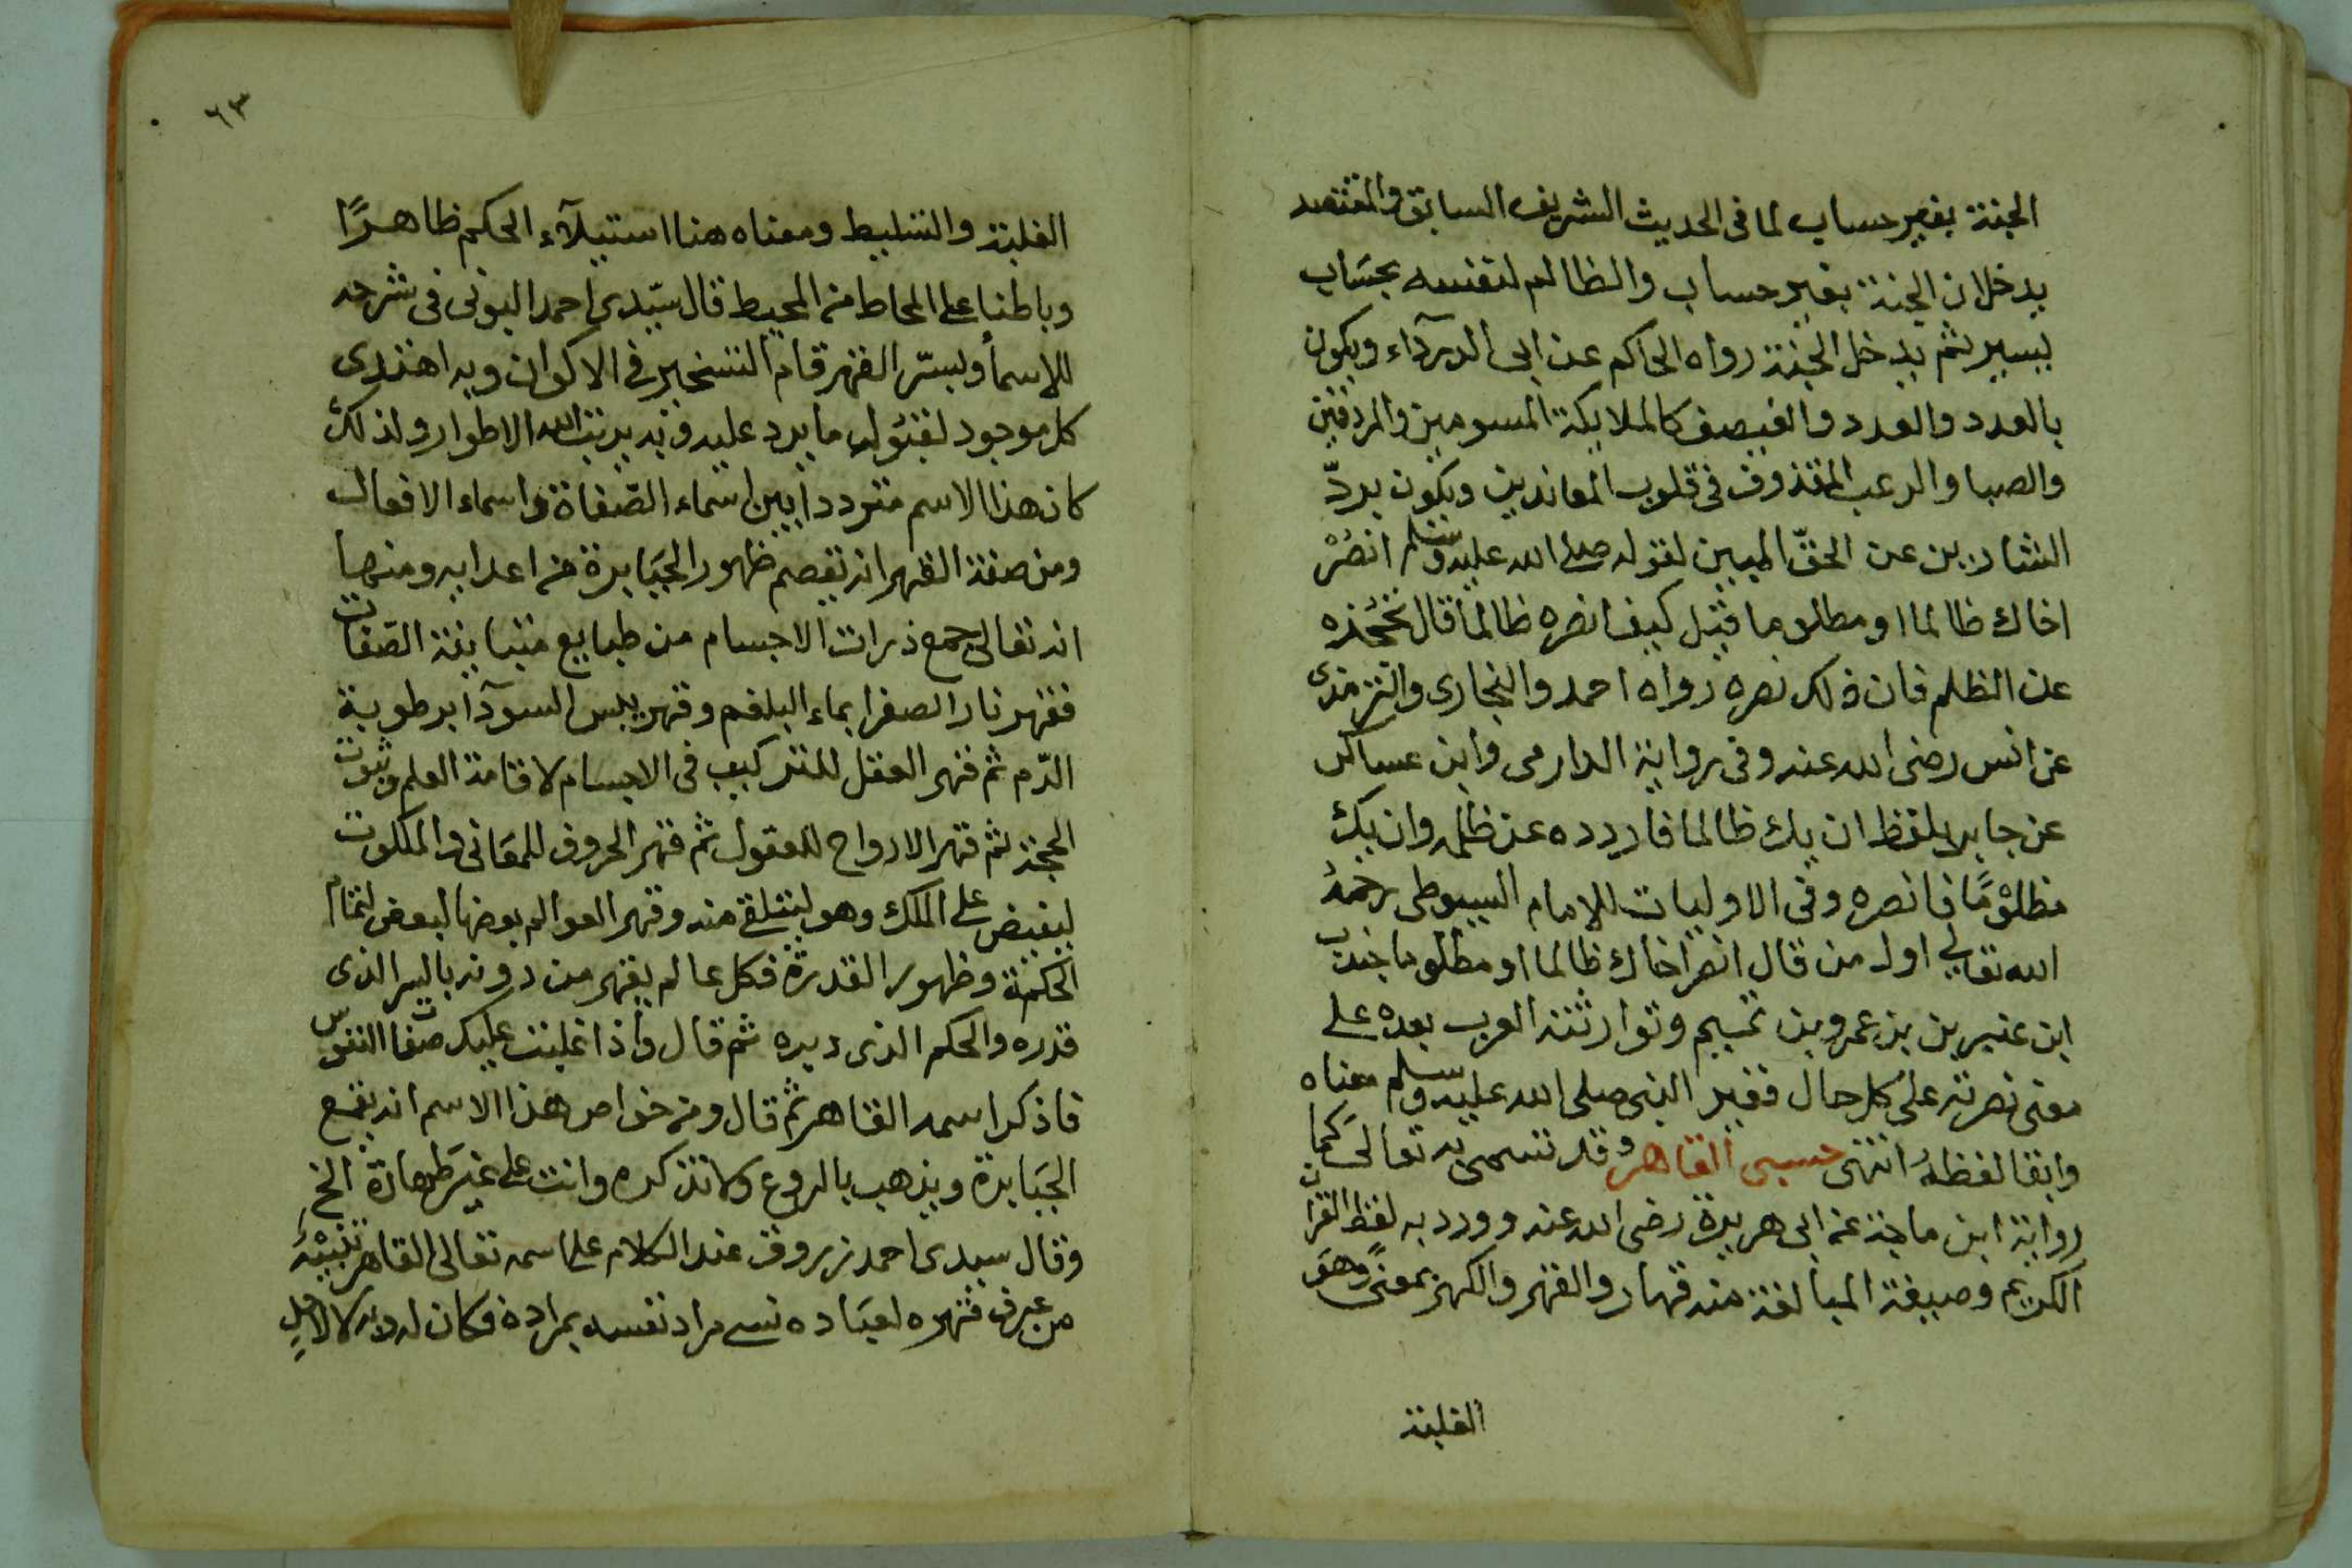 الجنة بغير حساب لما فى الحديث الشريف السابق والمقتصد
يدخلان الجنة بغير حساب والظالم لنفسه بحساب
يسير ثم يدخل الجنة رواه الحاكم عن ابى الدرآداء ويكون
بالعدد والعدد والفيصف كالملايكة المسومين والمردفين
والصبا والرعب المقذوف فى قلوب المعاندين ويكون بردّ
الشاردين عن الحقّ المبين لقوله صلى الله عليه وسلم انصُرْ
اخاك ظالما او مظلوما قيل كيف انصره ظالما قال تحجُزه
عن الظلم فان ذلك نصره رواه احمد والبخارى والترمذى
عن انس رضى الله عنه وفى رواية الدارمى وابن عساكر
عن جابر بلفظ ان يك ظالما فاردده عن ظلمه وان يك
مظلوْمًا فانصره وفى الاوليات للامام السيوطى رحمهُ
الله تعالى اول من قال انصر اخاك ظالما او مظلوما جندب
ابن عنبر بن عمرو بن تميم وتوارثته العرب بعده على
معنى نصرته على كل حال فغير النبى صلى الله عليه وسلم معناه
وابقا لفظهُ انتهى حسبى القاهر وقد تسمى به تعالى كما فى
رواية ابن ماجة عن ابى هريرة رضى الله عنه وورد به لفظ القران
الكريم وصيغة المبالغة منه قهار والقهر والكهر بمعنىً وهو
الغلبة
٦٣
الغلبة والتسليط ومعناه هنا استيلآء الحكم ظاهرًا
وباطنا على المحاط من المحيط قال سيّدى احمد البونى فى شرحه
للاسماْ وبسرّ القهر قام التسخير فى الاكوان وبه اهتدى
كل موجود لقبُول ما يرد عليه وبه يرتب الله الاطوار ولذلك
كان هذا الاسم مترددا بين اسماء الصّفاة واسماء الافعال
ومن صفة القهر انه يقصم ظهور الجَبَابرة من اعدايه ومنها
انه تعالى جمع ذرات الاجسام من طبايع متباينة الصّفات
فقهر نار الصفرا بماء البلغم وقهر يبس السودآ برطوبة
الدّم ثم قهر العقل للتركيب فى الاجسام لاقامة العلم وثبوت
الحجة ثم قهر الارواح للعقول ثم قهر الحروف للمعَانى والملكوت
ليفيض على الملك وهو ليتلقى منه وقهر العوالم بعضها لبعض لتمام
الحكمة وظهور القدرة فكل عالم يقهر من دونه بالسر الذى
قدره والحكم الذى دبره ثم قال واذا غلبت عليك صفات النفوس
فاذكر اسمه القاهر ثم قال ومن خواص هذا الاسم انه يقمع
الجَبَابرة ويذهب بالروع ولا تذكره وانت على غير طهارة الخ
وقال سيدى احمد زروق عند الكلام على اسمه تعالى القاهر تنبيْهُ
من عرف قهره لعبَاده نسى مراد نفسه بمراده فكان له وبه لا لاحدٍ